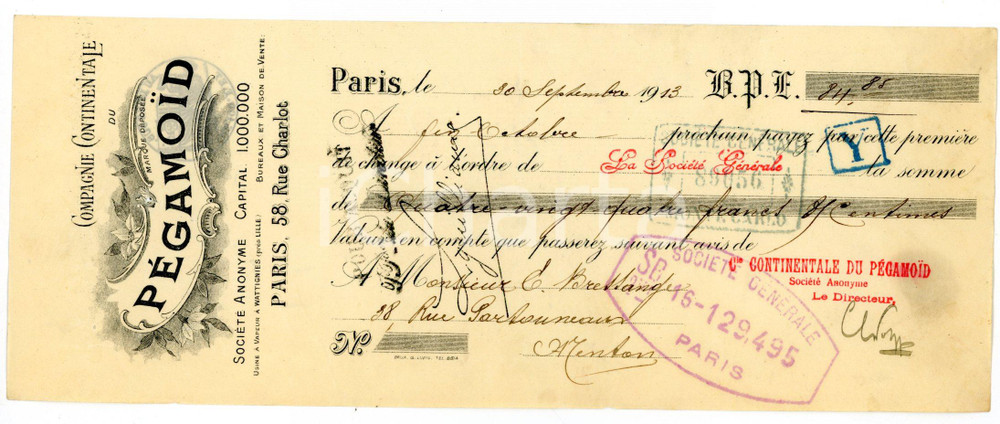 COMPAGNIE CONTINENTALE
DU
PÉGAMOÏD
MARQUE DÉPOSÉE
SOCIÉTÉ ANONYME CAPITAL 1.000.000
USINE A VAPEUR A WATTIGNIES (près LILLE) BUREAUX ET MAISON DE VENTE:
PARIS, 58, Rue Charlot
Paris, le 30 Septembre 1913 B.P.F. 84,85
A fin Octobre prochain payez par cette première
de change à l'ordre de La Société Générale la somme
de Quatre vingt quatre francs Centimes
Valeur en compte que passerez suivant avis de
Cie CONTINENTALE DU PÉGAMOÏD
Société Anonyme
Le Directeur,
A Monsieur E.
38 Rue Partouneaux
Menton
No
SOCIÉTÉ GÉNÉRALE
89656
Y
SOCIÉTÉ GÉNÉRALE
16-129,495
PARIS